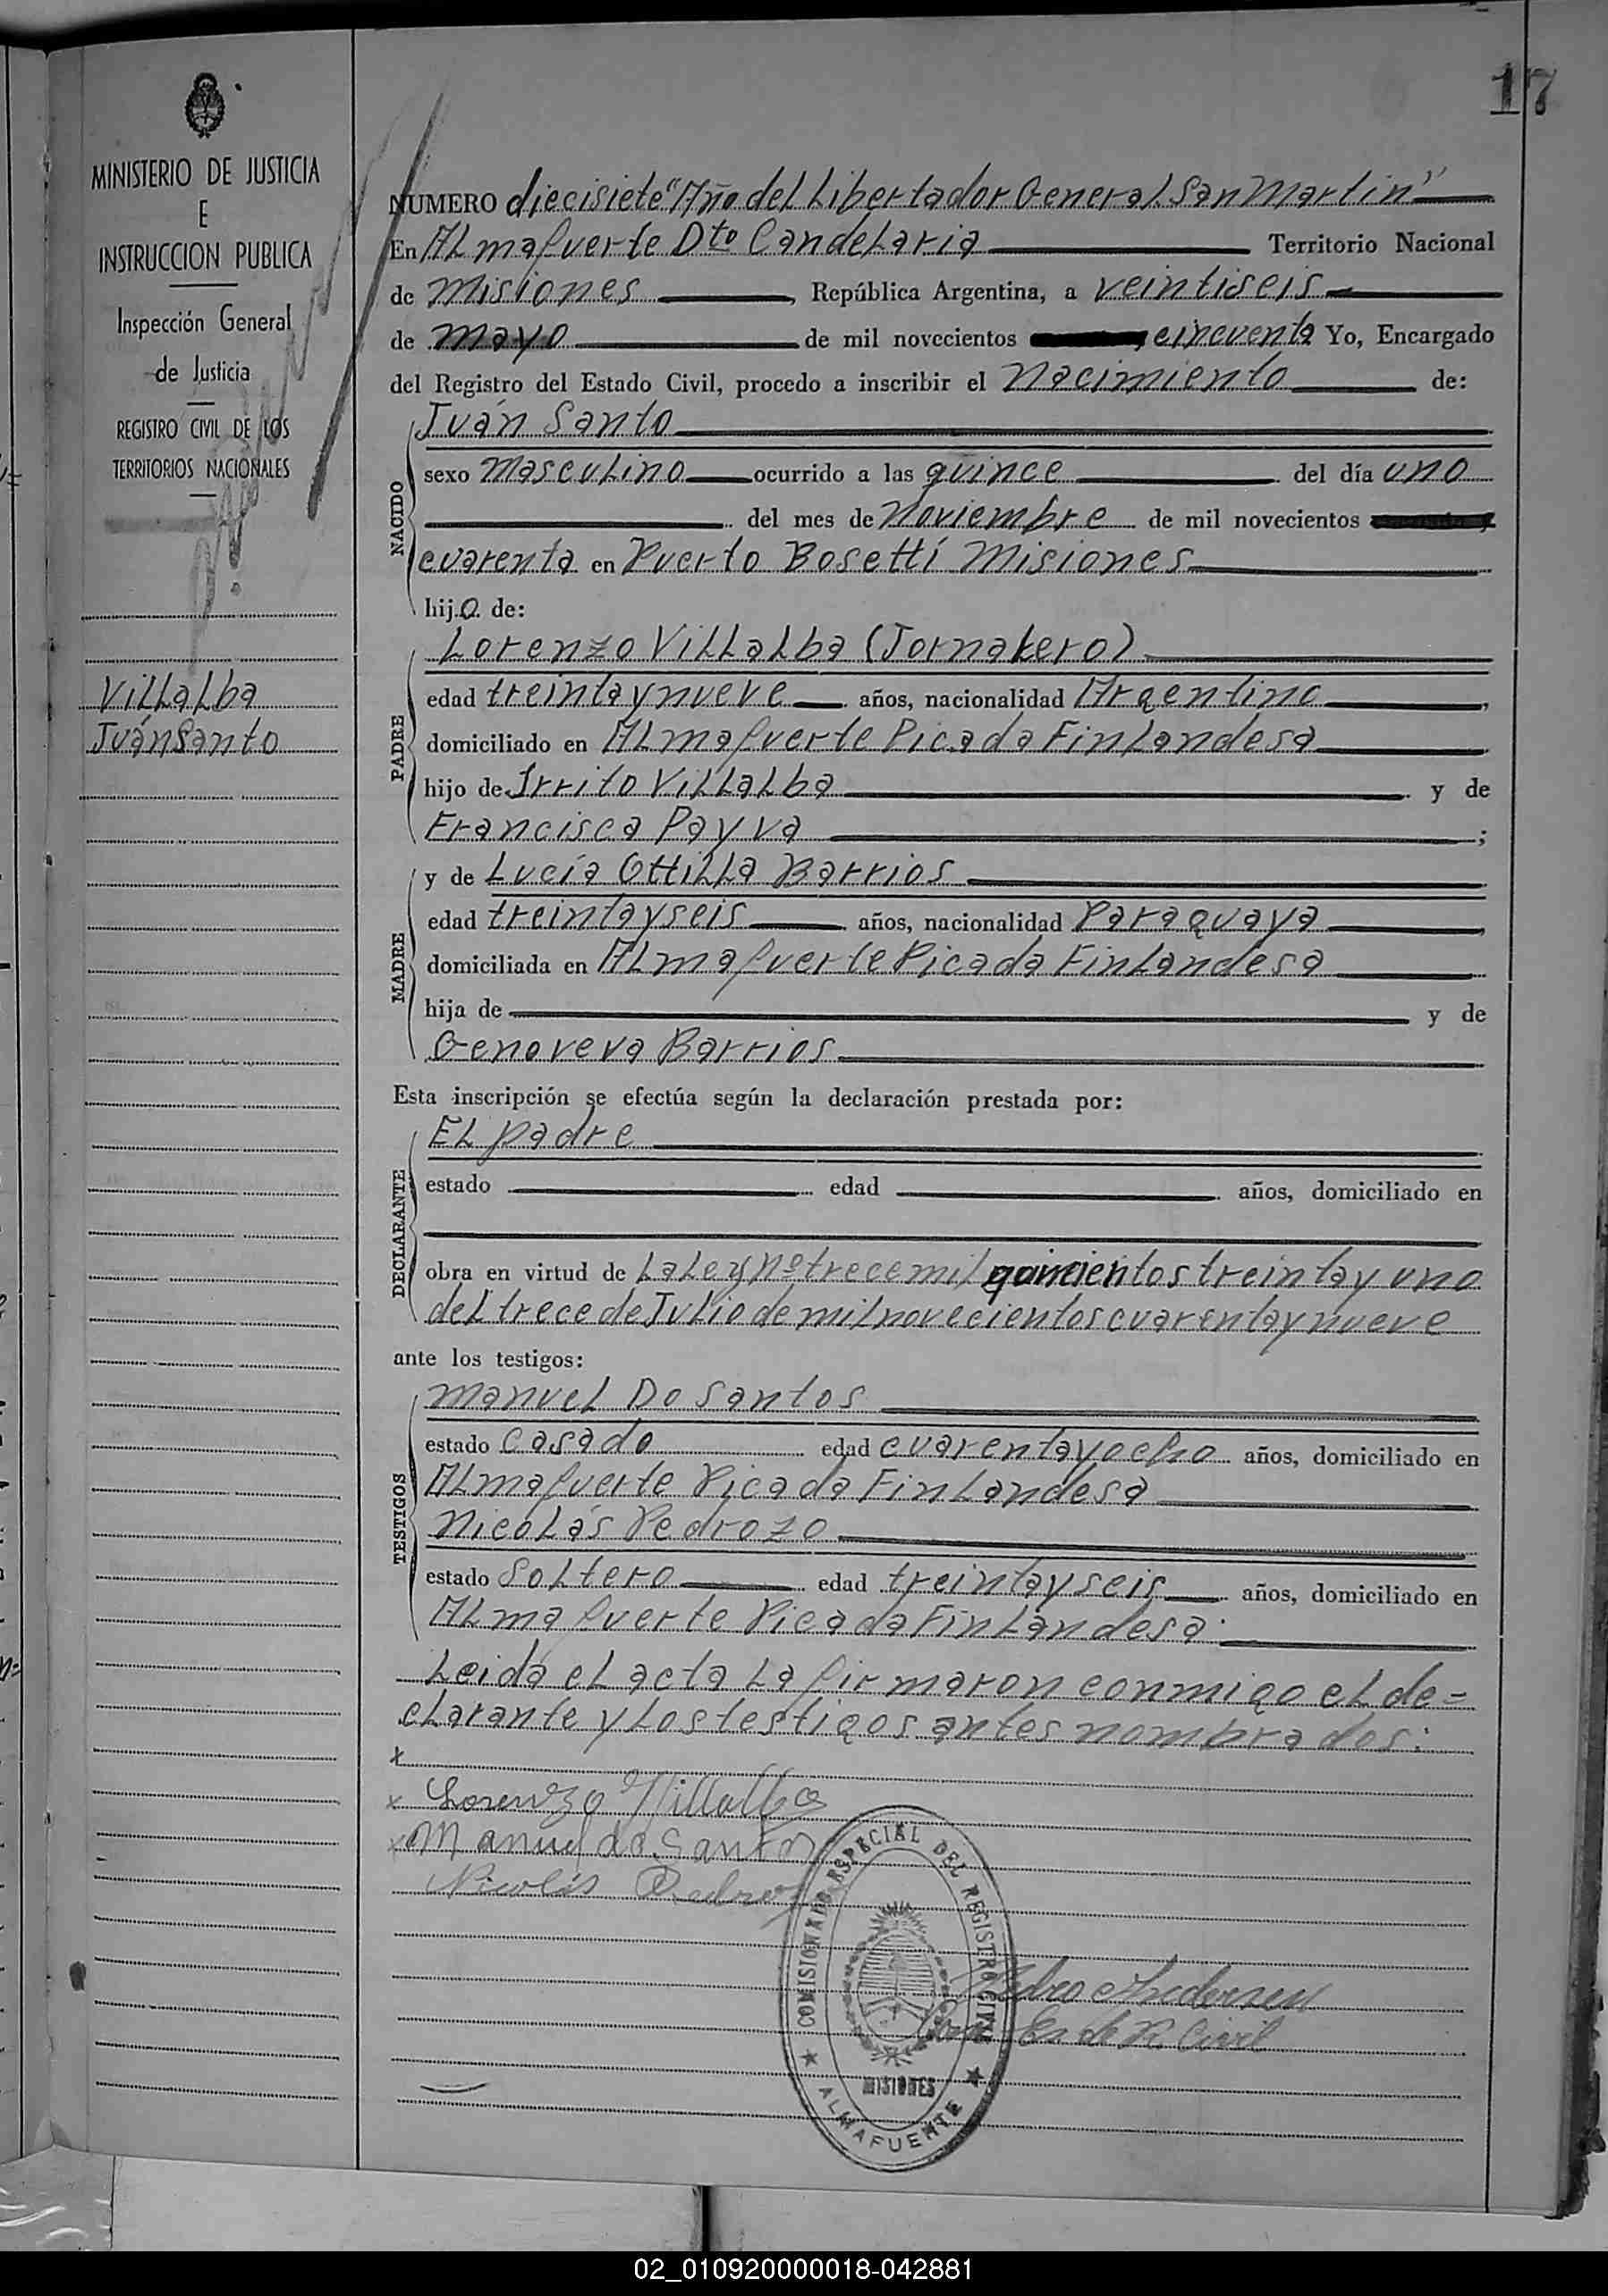 17
MINISTERIO DE JUSTICIA
E
INSTRUCCION PUBLICA
Inspección General
de Justicia
REGISTRO CIVIL DE LOS
TERRITORIOS NACIONALES
Villalba
Juán Santo
NUMERO diecisiete "Año del Libertador General San Martin"
En Almafuerte Dto Candelaria Territorio Nacional
de Misiones, República Argentina, a veintiseis
de mayo de mil novecientos cincuenta Yo, Encargado
del Registro del Estado Civil, procedo a inscribir el Nacimiento de:
NACIDO
Juán Santo
sexo masculino ocurrido a las quince del día uno
del mes de Noviembre de mil novecientos
cuarenta en Puerto Bosetti Misiones
hijo de:
PADRE
Lorenzo Villalba (Jornalero)
edad treinta y nueve años, nacionalidad Argentino,
domiciliado en Almafuerte Picada Finlandesa
hijo de Irrito Villalba y de
Francisca Payva;
MADRE
y de Lucía Ottilla Barrios
edad treinta y seis años, nacionalidad Paraguaya,
domiciliada en Almafuerte Picada Finlandesa
hija de y de
Genoveva Barrios
Esta inscripción se efectúa según la declaración prestada por:
DECLARANTE
El padre
estado edad años, domiciliado en
obra en virtud de La Ley Nº trece mil quinientos treinta y uno
del trece de Julio de mil novecientos cuarenta y nueve
ante los testigos:
TESTIGOS
Manuel Do Santos
estado casado edad cuarenta y ocho años, domiciliado en
Almafuerte Picada Finlandesa
Nicolás Pedrozo
estado soltero edad treinta y seis años, domiciliado en
Almafuerte Picada Finlandesa.
Leida el acta la firmaron conmigo el de=
clarante y los testigos antes nombrados:
x
x Lorenzo Villalba
x Manuel do Santos
Nicolás Pedrozo
COMISIONADO ESPECIAL DEL REGISTRO CIVIL
MISIONES
★ ALMAFUERTE ★
Pedro Andersen
Com Es de R. Civil
02_010920000018-042881